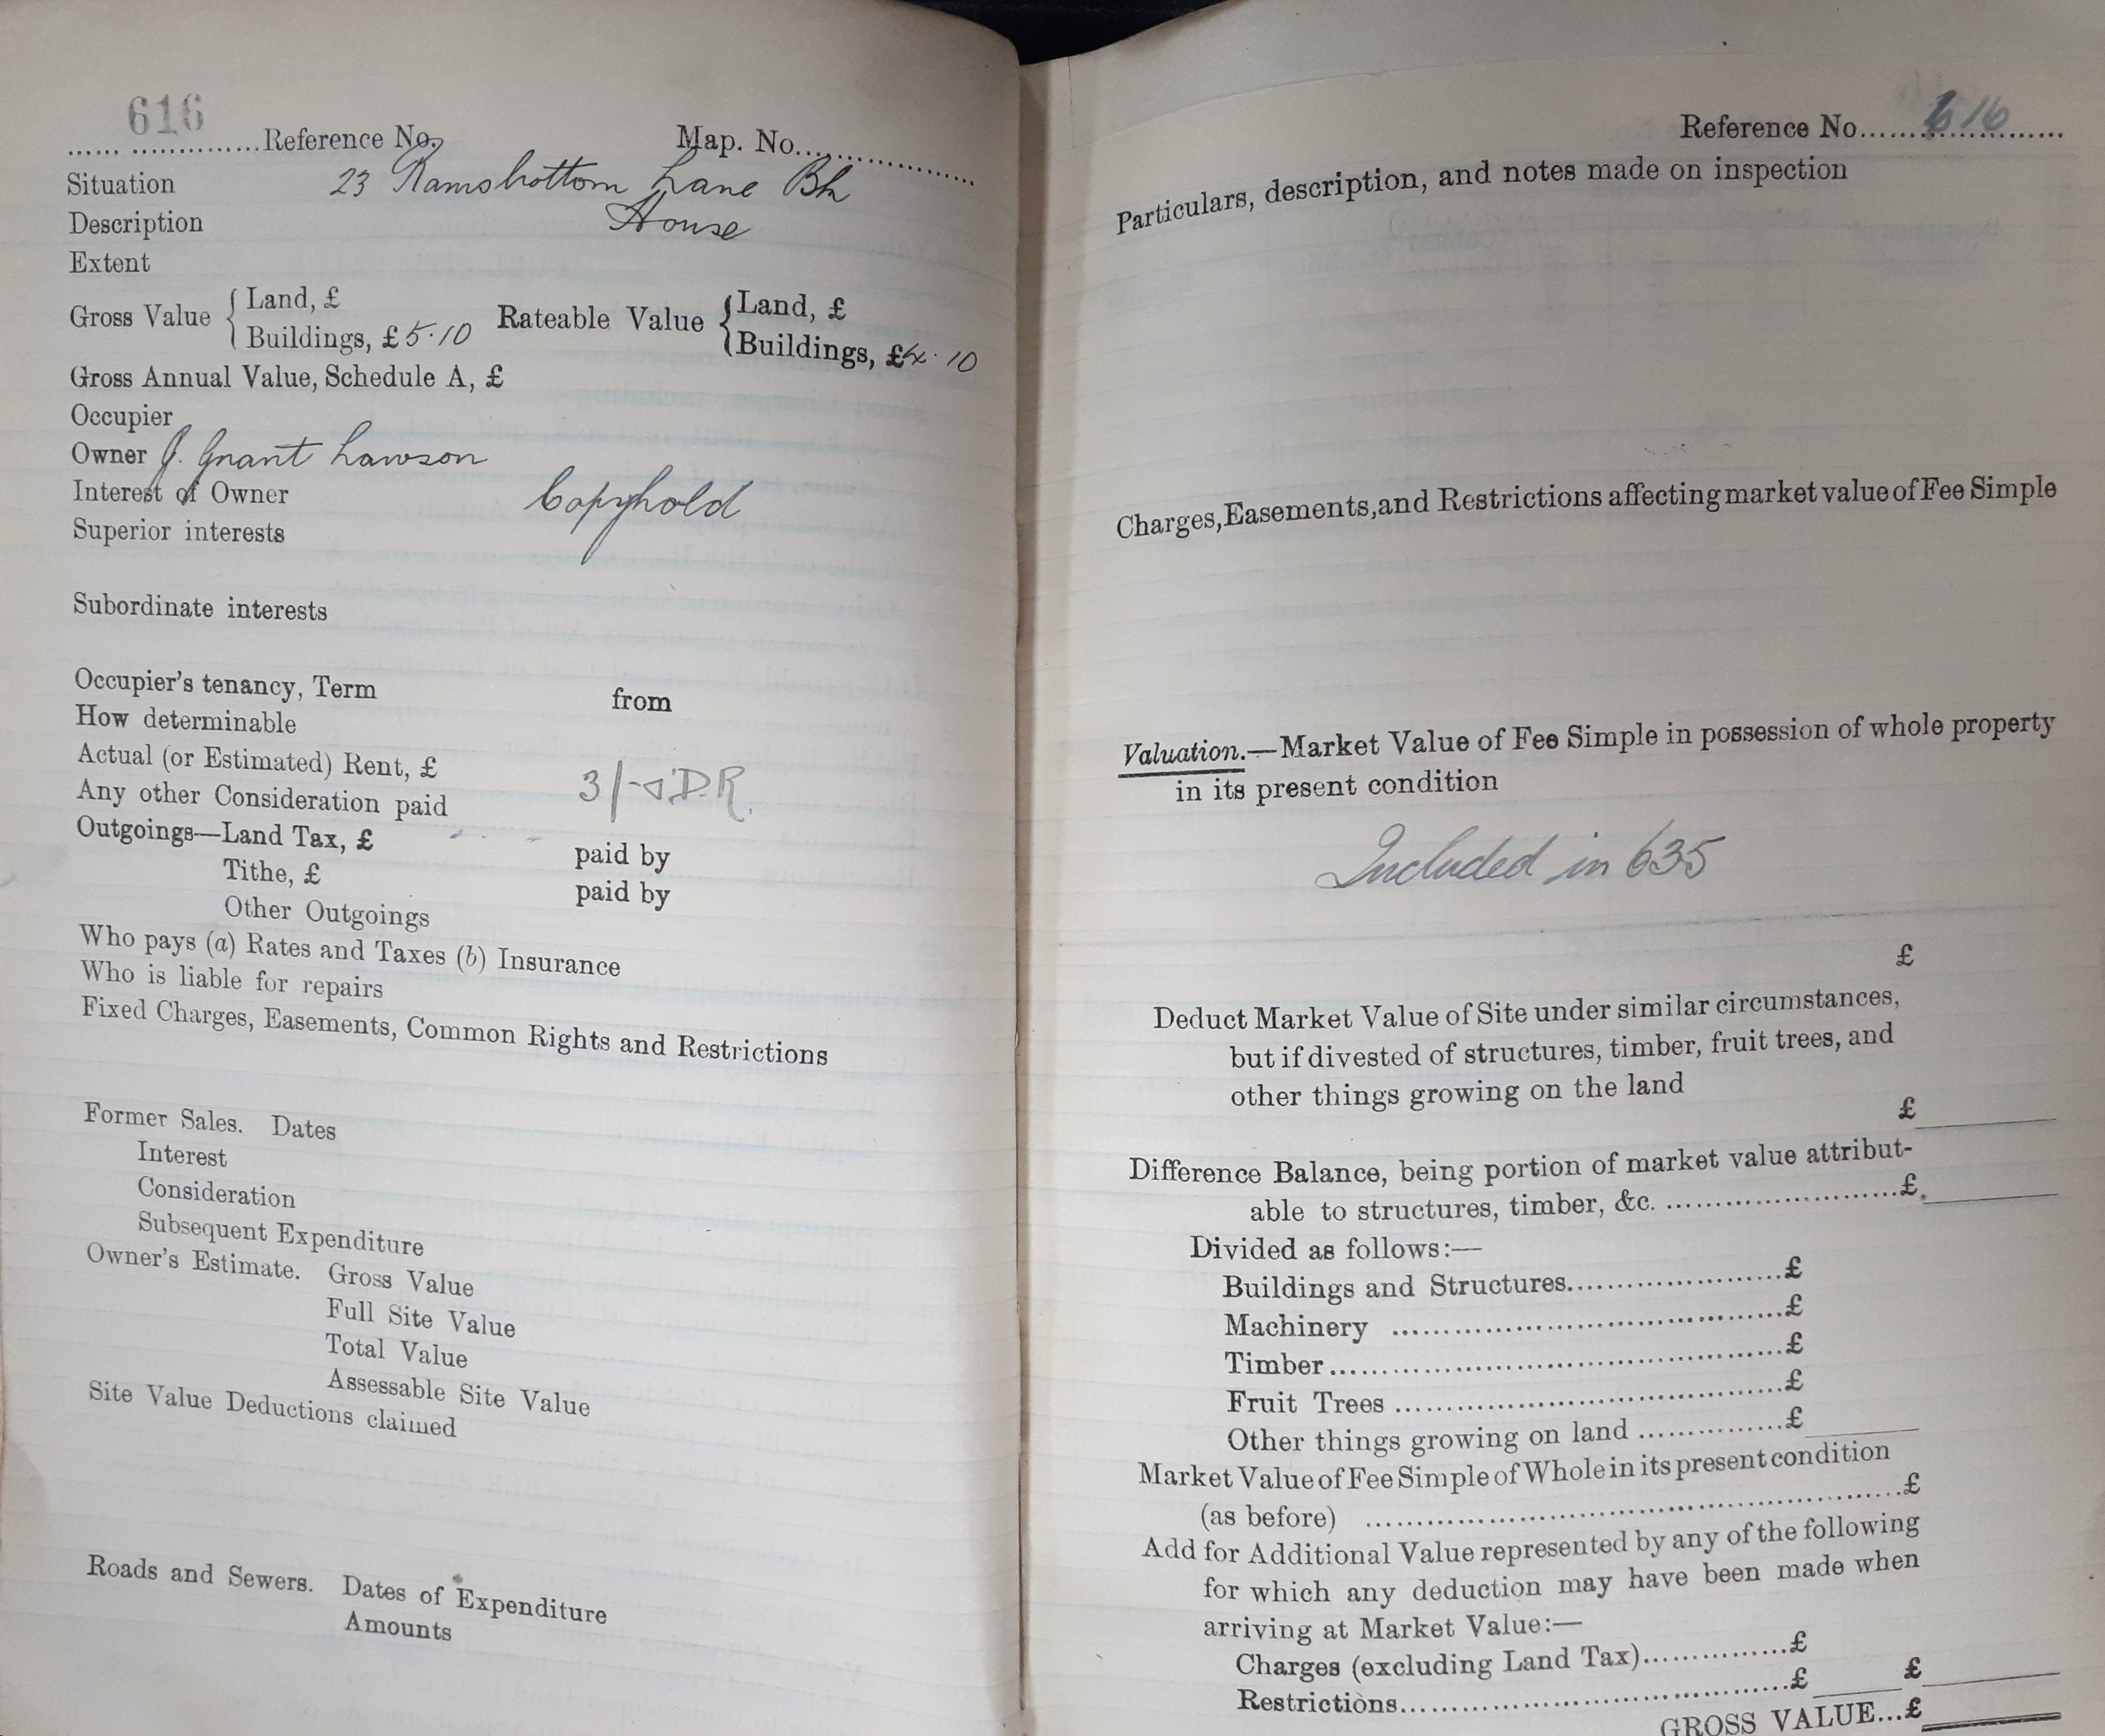 616
...... ..............Reference No. Map. No...................
Situation 23 Ramsbottom Lane Bk
Description House
Extent
Gross Value { Land, £ Rateable Value { Land, £
Buildings, £ 5·10 Buildings, £4·10
Gross Annual Value, Schedule A, £
Occupier
Owner J. Grant Lawson
Interest of Owner Copyhold
Superior interests
Subordinate interests
Occupier's tenancy, Term from
How determinable
Actual (or Estimated) Rent, £
Any other Consideration paid 3/- D.R.
Outgoings—Land Tax, £ paid by
Tithe, £ paid by
Other Outgoings
Who pays (a) Rates and Taxes (b) Insurance
Who is liable for repairs
Fixed Charges, Easements, Common Rights and Restrictions
Former Sales. Dates
Interest
Consideration
Subsequent Expenditure
Owner's Estimate. Gross Value
Full Site Value
Total Value
Assessable Site Value
Site Value Deductions claimed
Roads and Sewers. Dates of Expenditure
Amounts
Reference No...... 616 ......
Particulars, description, and notes made on inspection
Charges, Easements, and Restrictions affecting market value of Fee Simple
Valuation.—Market Value of Fee Simple in possession of whole property
in its present condition
Included in 635
£
Deduct Market Value of Site under similar circumstances,
but if divested of structures, timber, fruit trees, and
other things growing on the land
£
Difference Balance, being portion of market value attribut-
able to structures, timber, &c. ........................£
Divided as follows:—
Buildings and Structures......................£
Machinery ..........................................£
Timber.................................................£
Fruit Trees ..........................................£
Other things growing on land ...............£
Market Value of Fee Simple of Whole in its present condition
(as before) ........................................................£
Add for Additional Value represented by any of the following
for which any deduction may have been made when
arriving at Market Value:—
Charges (excluding Land Tax)...............£
Restrictions..........................................£ £
GROSS VALUE...£